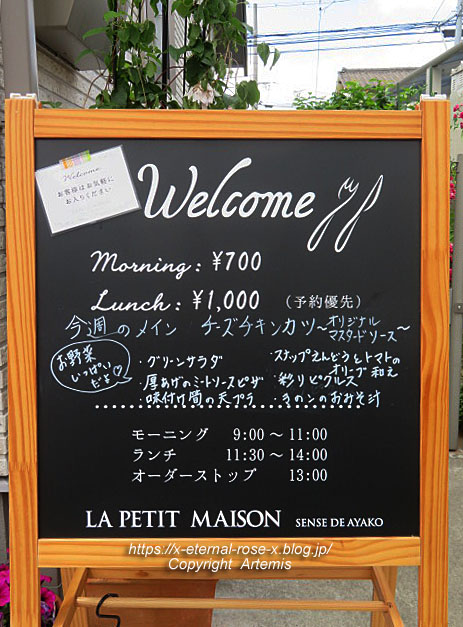 Welcome
お客様はお気軽に
お入りください
Welcome
Morning : ¥700
Lunch : ¥1,000 (予約優先)
今週のメイン チーズチキンカツ～オリジナルマスタードソース～
お野菜
いっぱい
だよ♡
・グリーンサラダ
・厚あげのミートソースピザ
・味付け質の天プラ
・スナップえんどうとトマトの
オリーブ和え
・彩りピクルス
・きのこのおみそ汁
モーニング 9:00 ～ 11:00
ランチ 11:30 ～ 14:00
オーダーストップ 13:00
LA PETIT MAISON SENSE DE AYAKO
https://x-eternal-rose-x.blog.jp/
Copyright Artemis